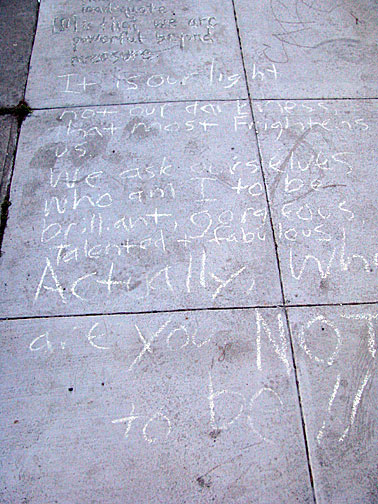 is that we are
powerful beyond
measure.
It is our light
not our darkness
that most Frightens
us.
We ask ourselves
Who am I to be
brilliant, gorgeous
talented + fabulous!
Actually, Who
are you NOT
to be!!